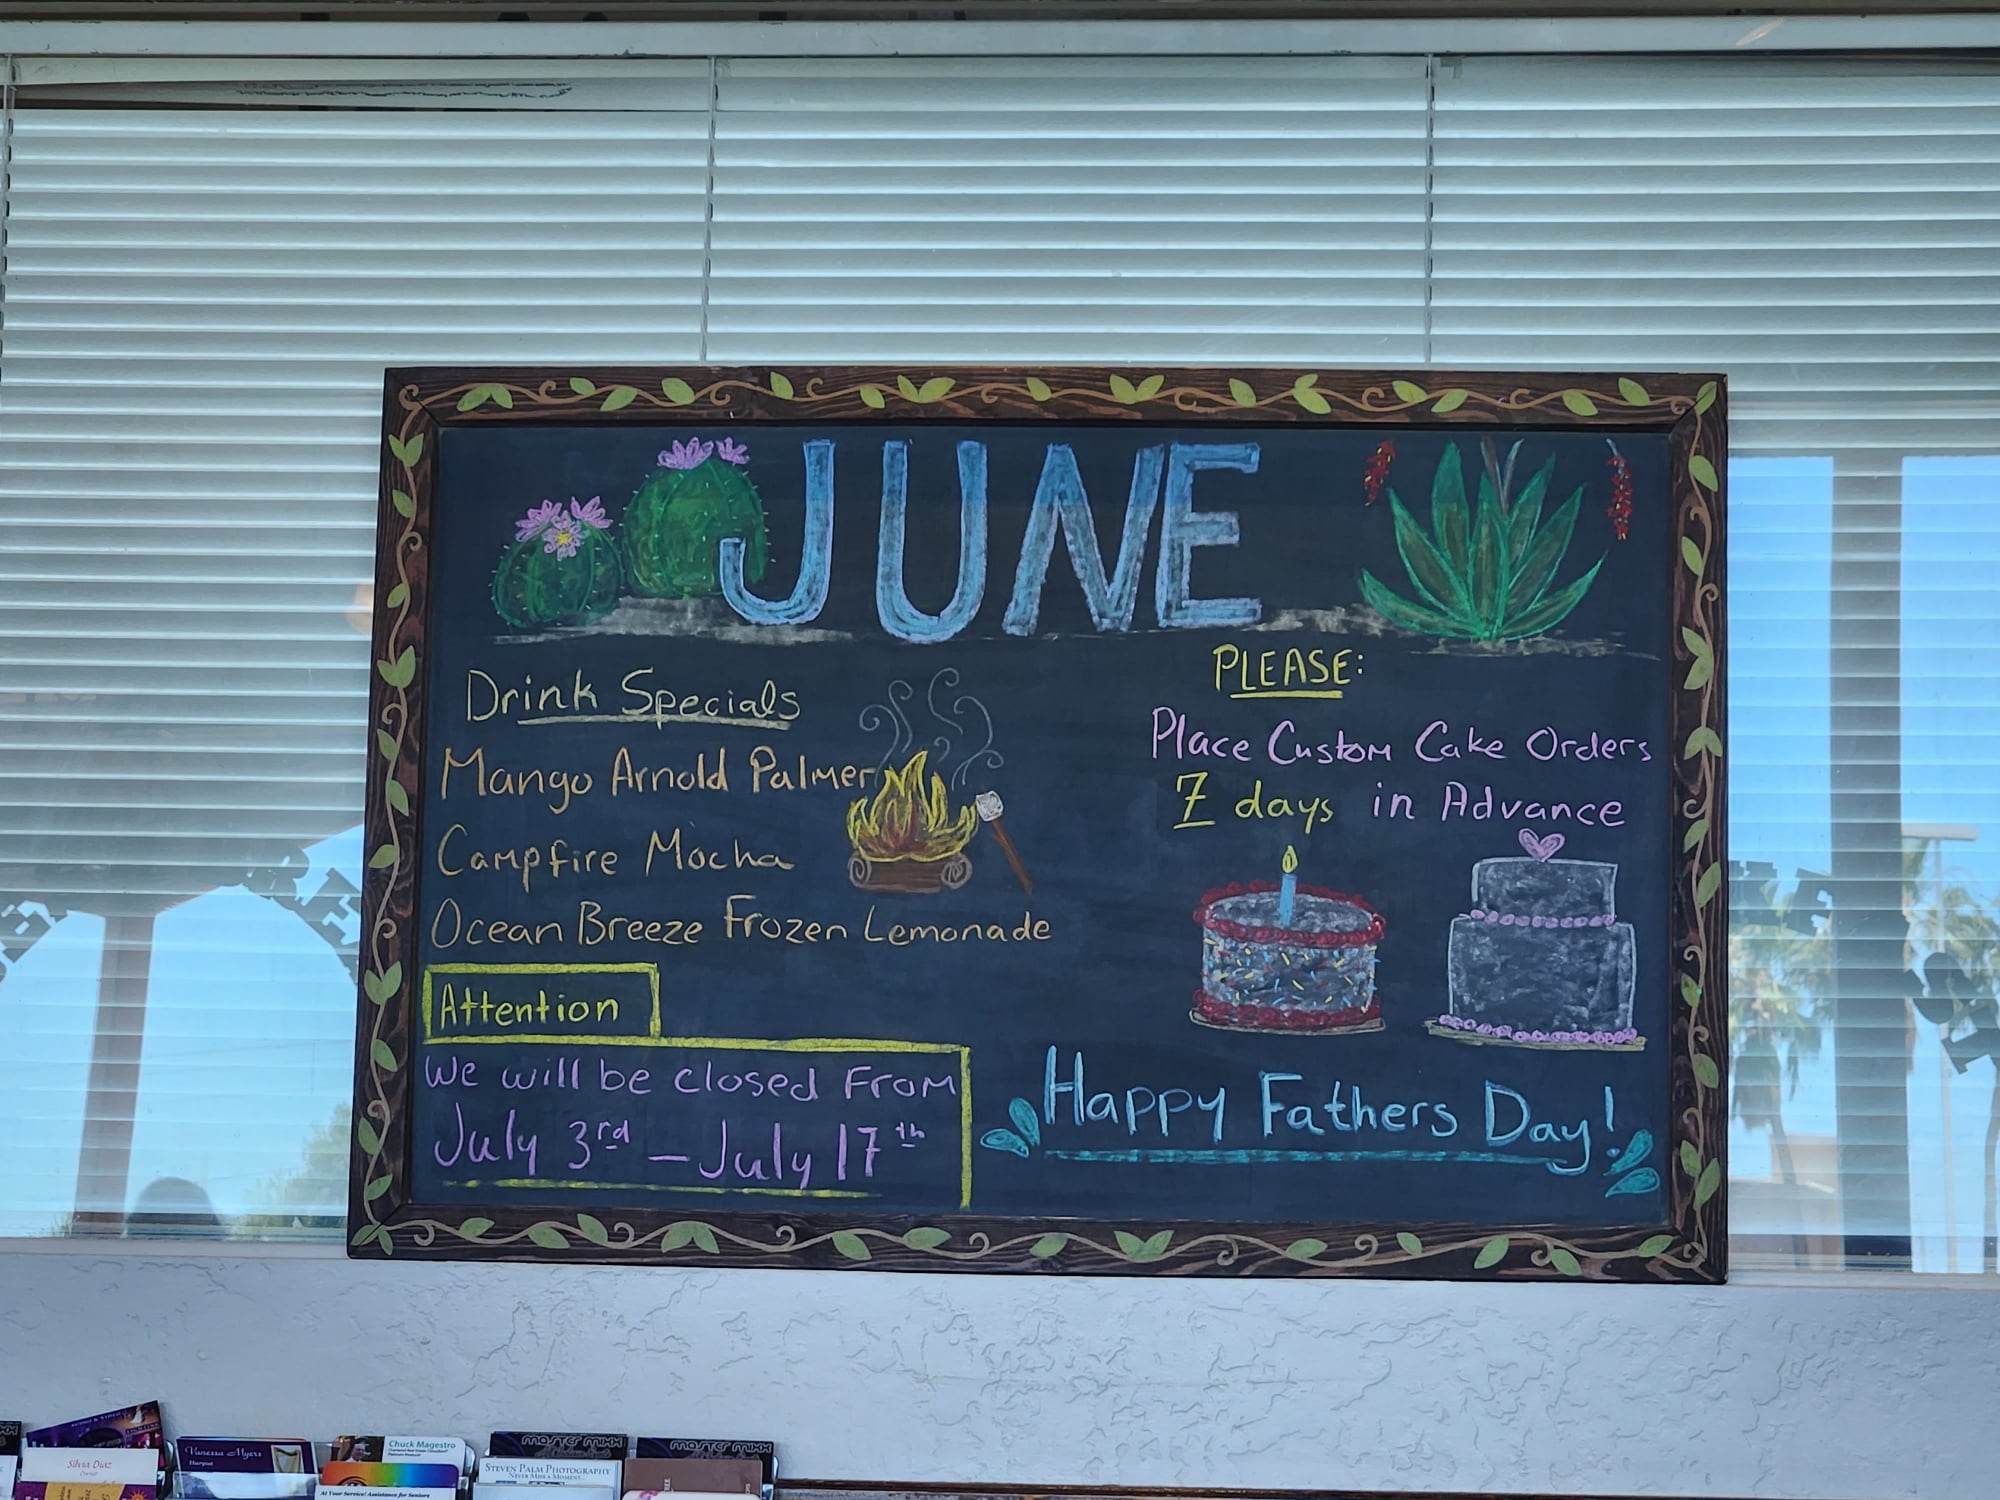 JUNE
Drink Specials
Mango Arnold Palmer
Campfire Mocha
Ocean Breeze Frozen Lemonade
Attention
We will be closed From
July 3rd – July 17th
PLEASE:
Place Custom Cake Orders
7 days in Advance
Happy Fathers Day!
Silvia Diaz
Vanessa Myers
Harpist
Chuck Magestro
At Your Service! Assistance for Seniors
master mixx
STEVEN PALM PHOTOGRAPHY
NEVER MISS A MOMENT...
master mixx